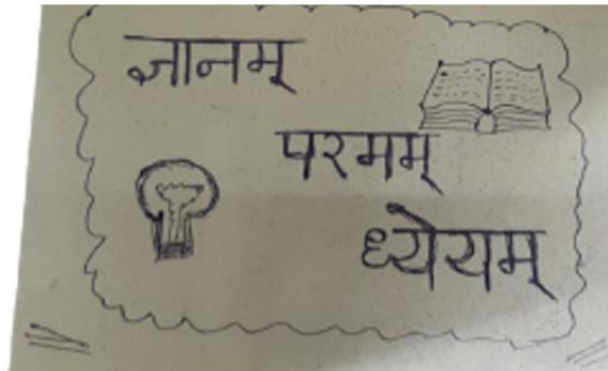 ज्ञानम्
परमम्
ध्येयम्